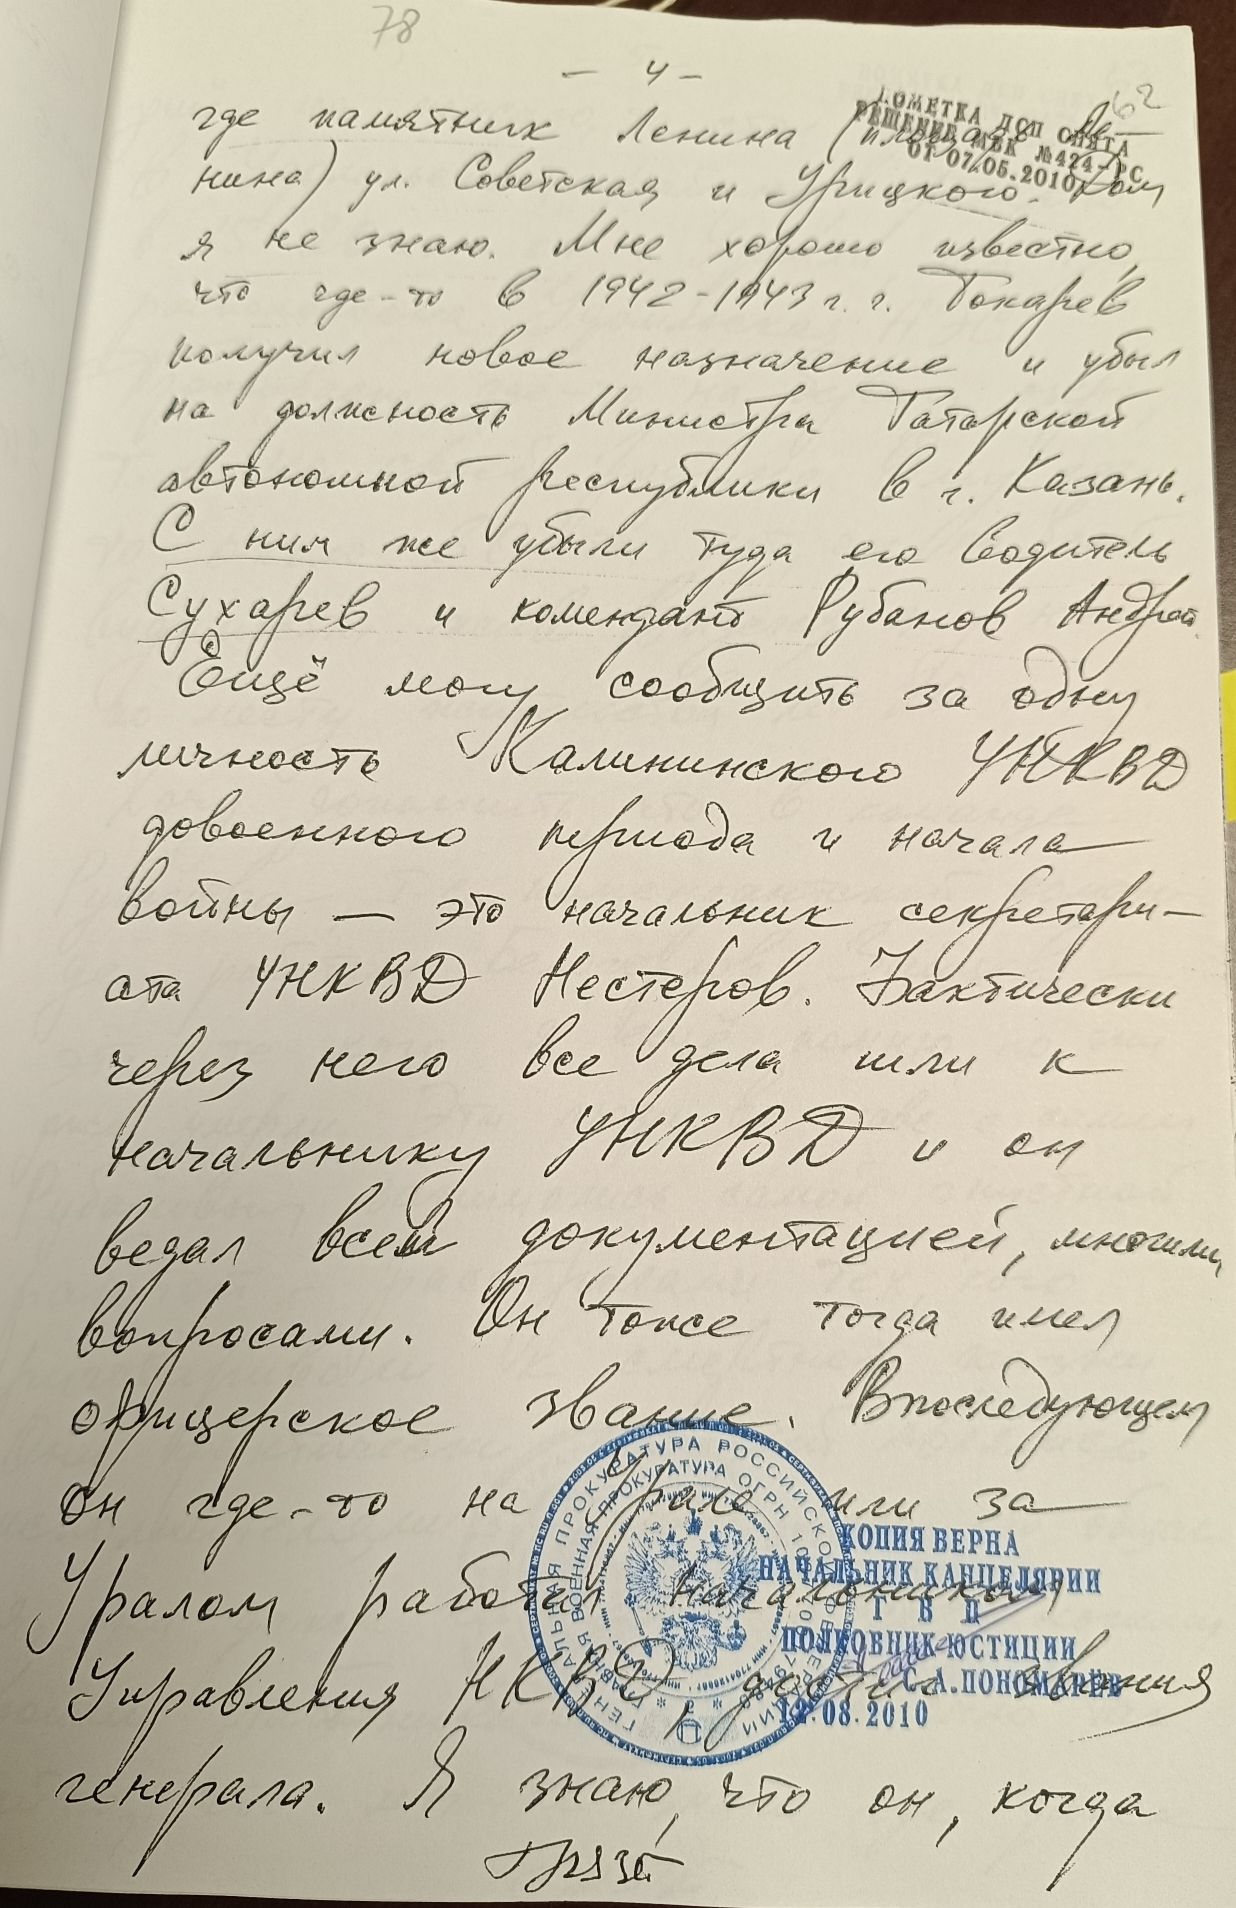 78
- 4 -
62
ПОМЕТКА ДСП СНЯТА
РЕШЕНИЕ МВК №424-РС
ОТ 07.05.2010
где памятник Ленина (площадь Ле-
нина) ул. Советская и Урицкого. Дом
я не знаю. Мне хорошо известно,
что где-то в 1942-1943 г.г. Токарев
получил новое назначение и убыл
на должность Министра Татарской
автономной республики в г. Казань.
С ним же убыли туда его водитель
Сухарев и комендант Рубанов Андрей.
Ещё могу сообщить за одну
личность Калининского УНКВД
довоенного периода и начала
войны — это начальник секретари-
ата УНКВД Нестеров. Фактически
через него все дела шли к
начальнику УНКВД и он
ведал всей документацией, многими
вопросами. Он тоже тогда имел
офицерское звание. Впоследующем
он где-то на Урале или за
Уралом работал начальником
Управления НКВД, достиг звания
генерала. Я знаю, что он, когда
ГЕНЕРАЛЬНАЯ ПРОКУРАТУРА РОССИЙСКОЙ ФЕДЕРАЦИИ
ГЛАВНАЯ ВОЕННАЯ ПРОКУРАТУРА ОГРН
КОПИЯ ВЕРНА
НАЧАЛЬНИК КАНЦЕЛЯРИИ
Г В П
ПОЛКОВНИК ЮСТИЦИИ
С.А.ПОНОМАРЕВ
12.08.2010